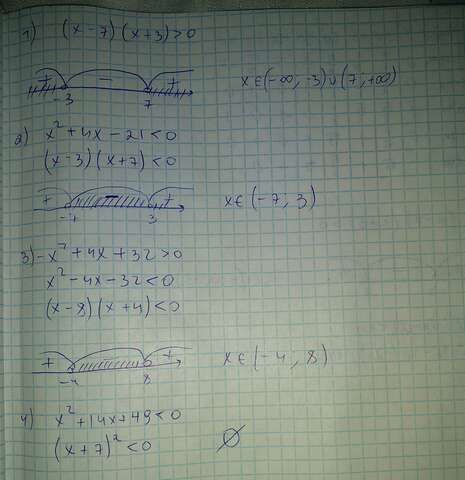 1) (x-7)(x+3)>0
+ - +
-3 7 x∈(-∞, -3)∪(7, +∞)
2) x²+4x-21<0
(x-3)(x+7)<0
+ - +
-7 3 x∈(-7; 3)
3) -x²+4x+32>0
x²-4x-32<0
(x-8)(x+4)<0
+ - +
-4 8 x∈(-4, 8)
4) x²+14x+49<0
(x+7)²<0 ∅